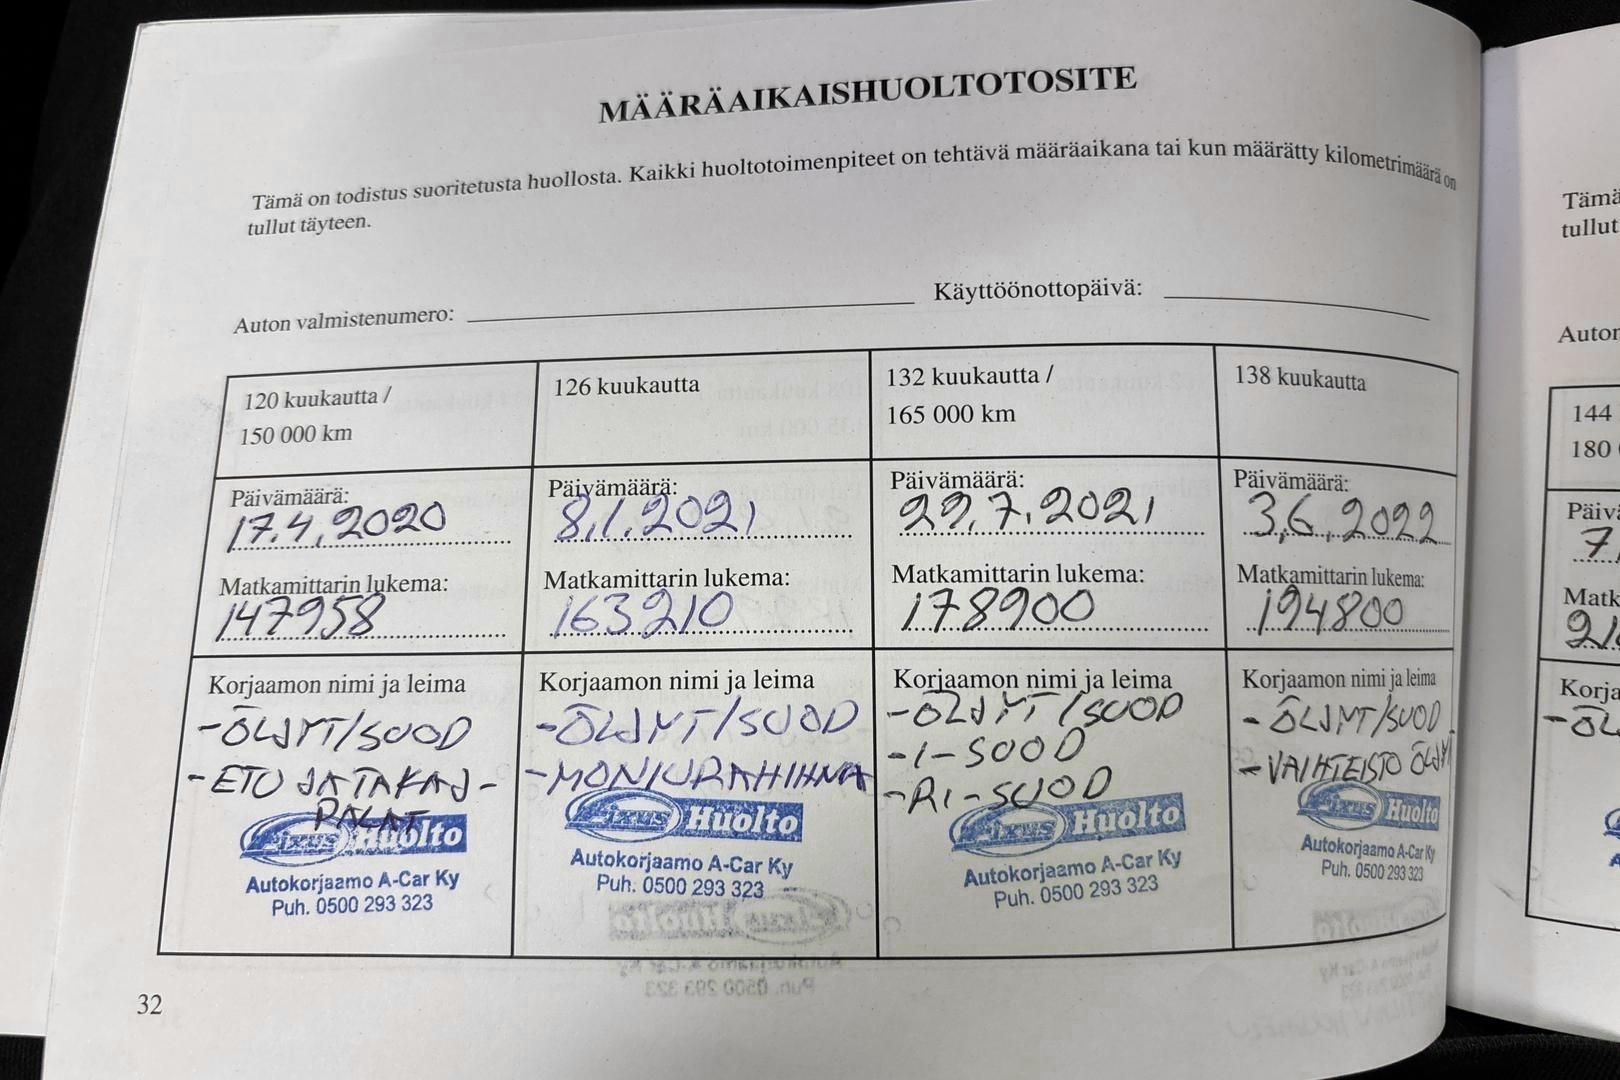 MÄÄRÄAIKAISHUOLTOTOSITE
Tämä on todistus suoritetusta huollosta. Kaikki huoltotoimenpiteet on tehtävä määräaikana tai kun määrätty kilometrimäärä on
tullut täyteen.
Auton valmistenumero:
Käyttöönottopäivä:
120 kuukautta /
150 000 km
Päivämäärä:
17.4.2020
Matkamittarin lukema:
147958
Korjaamon nimi ja leima
-ÖLJYT/SUOD
-ETU JA TAKAJ-
PALAT
Fixus Huolto
Autokorjaamo A-Car Ky
Puh. 0500 293 323
126 kuukautta
Päivämäärä:
8.1.2021
Matkamittarin lukema:
163210
Korjaamon nimi ja leima
-ÖLJYT/SUOD
-MONIURAHIHNA
Fixus Huolto
Autokorjaamo A-Car Ky
Puh. 0500 293 323
132 kuukautta /
165 000 km
Päivämäärä:
29.7.2021
Matkamittarin lukema:
178900
Korjaamon nimi ja leima
-ÖLJYT/SUOD
-I-SUOD
-RI-SUOD
Fixus Huolto
Autokorjaamo A-Car Ky
Puh. 0500 293 323
138 kuukautta
Päivämäärä:
3.6.2022
Matkamittarin lukema:
194800
Korjaamon nimi ja leima
-ÖLJYT/SUOD
-VAIHTEISTO ÖLJY
Fixus Huolto
Autokorjaamo A-Car Ky
Puh. 0500 293 323
32
Tämä
tullut
Auton
144
180
Päivä
7.
Matk
21
Korja
-ÖL